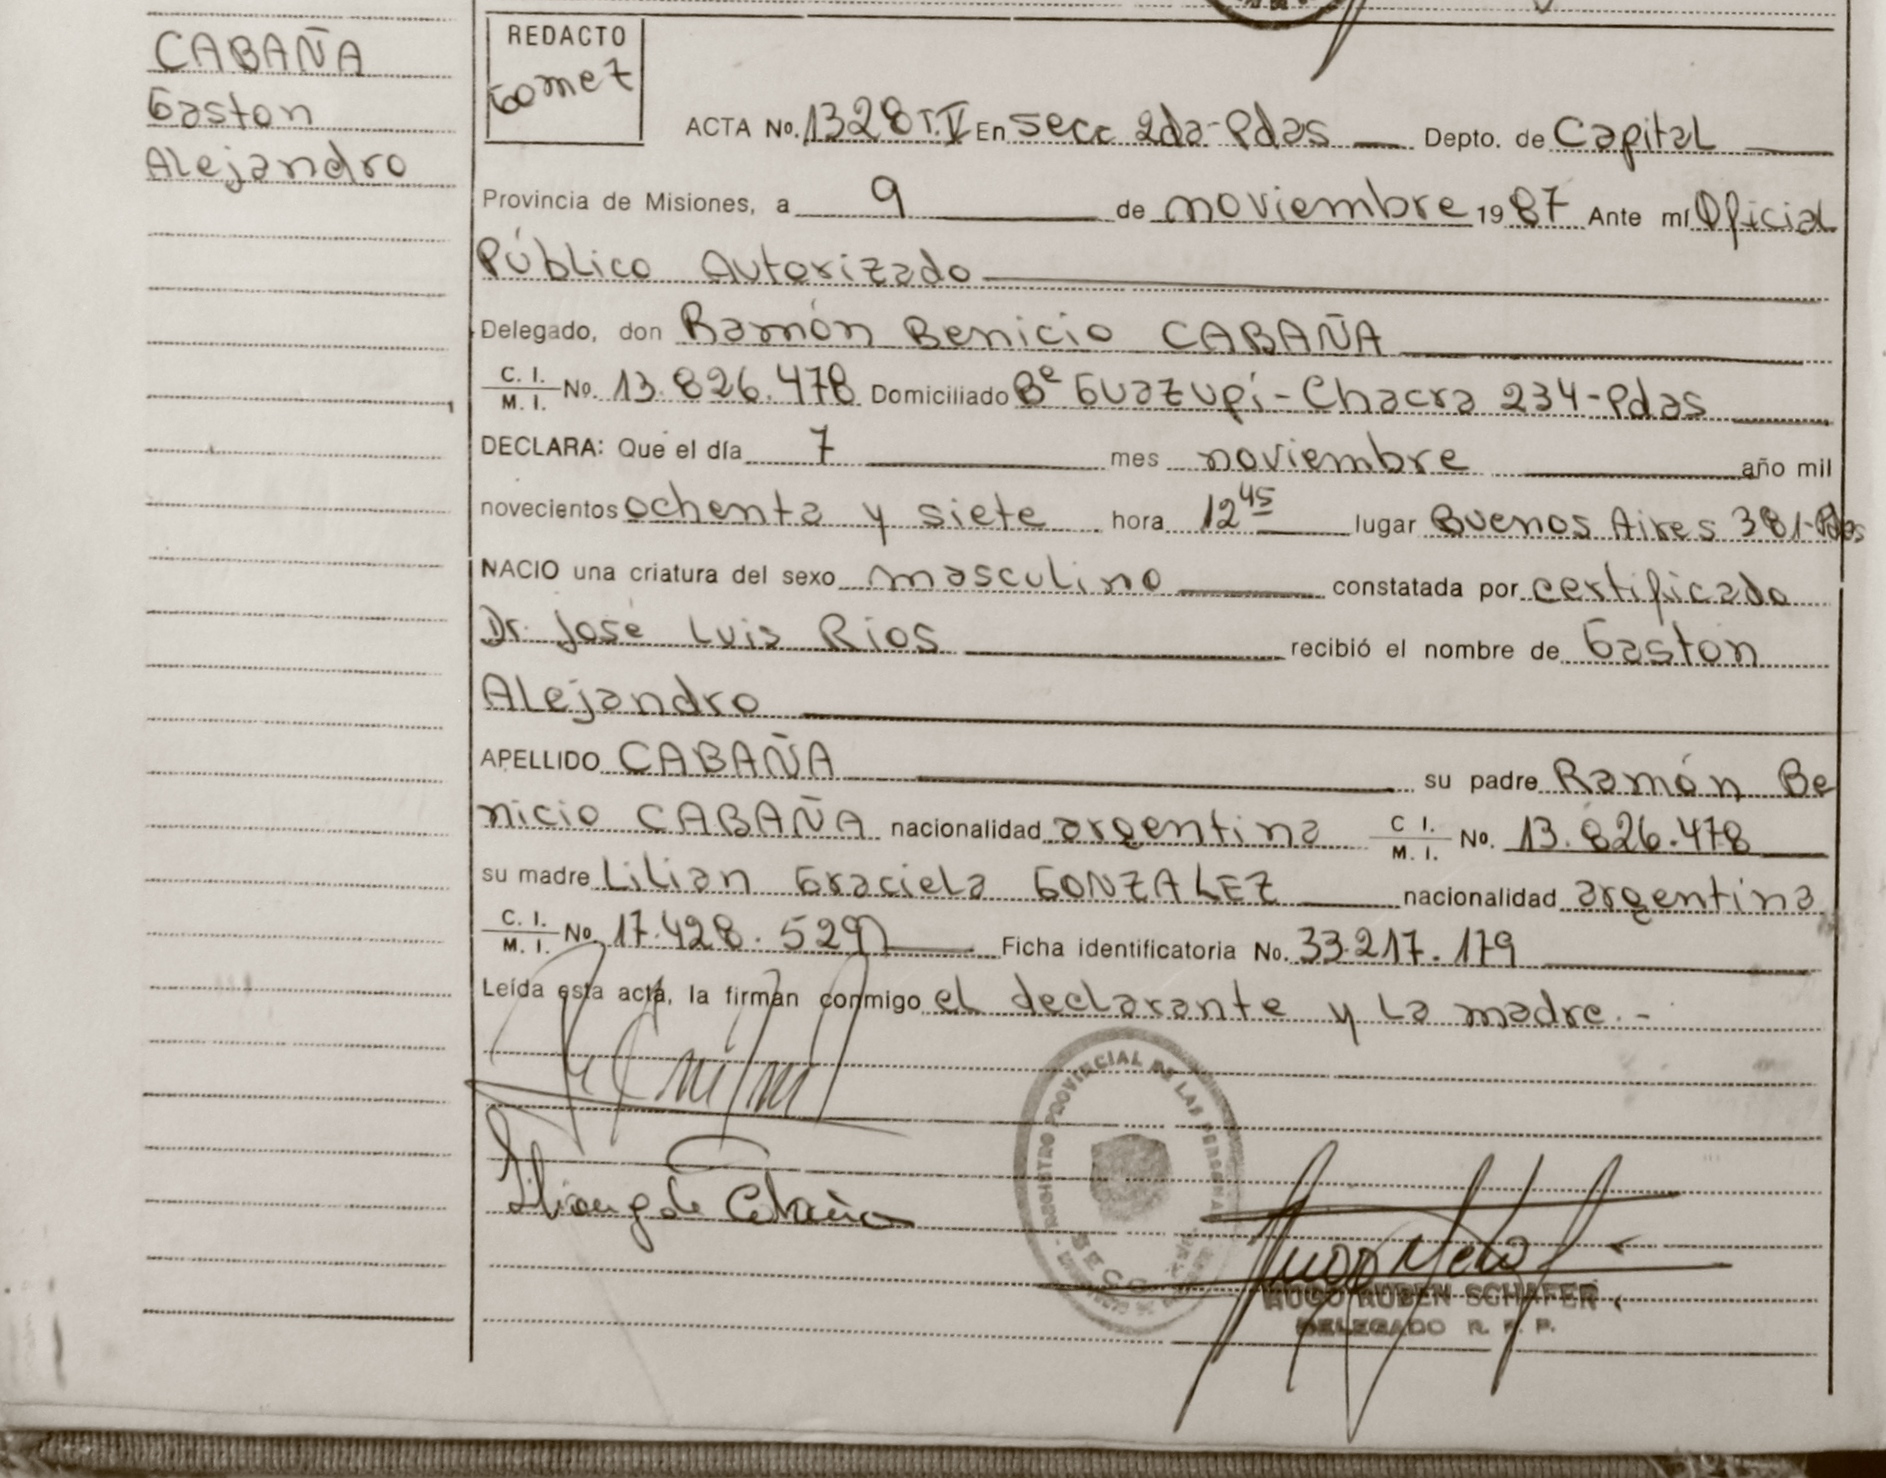 CABAÑA
Gaston
Alejandro
REDACTO
Gomez
ACTA No. 1328 T.V En Secc 2da-Pdas Depto. de Capital
Provincia de Misiones, a 9 de noviembre 1987 Ante mí Oficial
Público Autorizado
Delegado, don Ramón Benicio CABAÑA
C. I. M. I. No. 13.826.478 Domiciliado Bº Guazupí - Chacra 234-Pdas
DECLARA: Que el día 7 mes noviembre año mil
novecientos ochenta y siete hora 12 45 lugar Buenos Aires 381-Pdas
NACIO una criatura del sexo masculino constatada por certificado
Dr. José Luis Rios recibió el nombre de Gaston
Alejandro
APELLIDO CABAÑA su padre Ramón Be
nicio CABAÑA nacionalidad argentina C I. M. I. No. 13.826.478
su madre Lilian Graciela GONZALEZ nacionalidad argentina
C. I. M. I. No. 17.428.529 Ficha identificatoria No. 33.217.179
Leída esta acta, la firman conmigo el declarante y la madre.-
REGISTRO PROVINCIAL DE LAS PERSONAS
SECC
Lilian g de Cabaña
HUGO RUBEN SCHAFER
DELEGADO R. P. P.